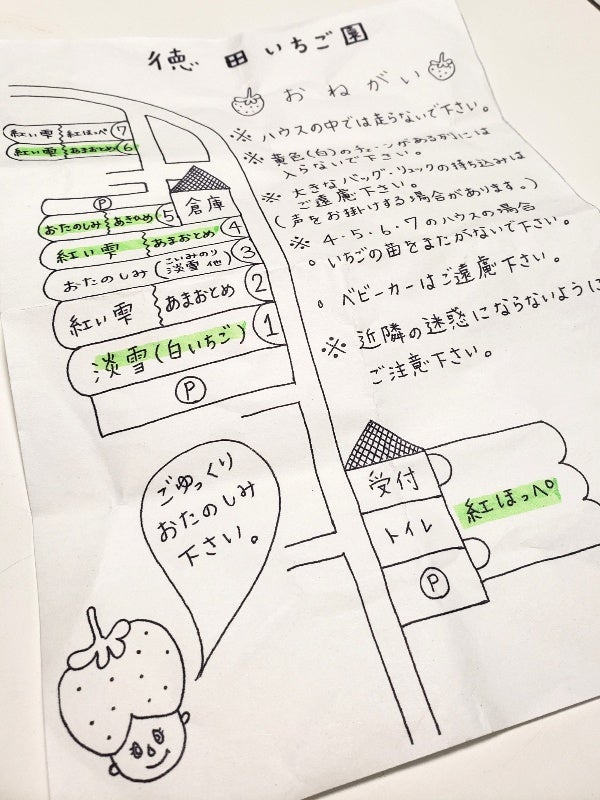 徳田いちご園
おねがい
※ ハウスの中では走らないで下さい。
※ 黄色(白)のチェーンがある列には
入らないで下さい。
※ 大きなバッグ・リュックの持ち込みは
ご遠慮下さい。
(声をお掛けする場合があります。)
※ 4・5・6・7のハウスの場合
。いちごの苗をまたがないで下さい。
。ベビーカーはご遠慮下さい。
※ 近隣の迷惑にならないように
ご注意下さい。
紅い雫 紅ほっぺ 7
紅い雫 あまおとめ 6
P
倉庫
おたのしみ あきひめ 5
紅い雫 あまおとめ 4
おたのしみ (こいみのり 淡雪 他) 3
紅い雫 あまおとめ 2
淡雪(白いちご) 1
P
ごゆっくり
おたのしみ
下さい。
受付
トイレ
P
紅ほっぺ